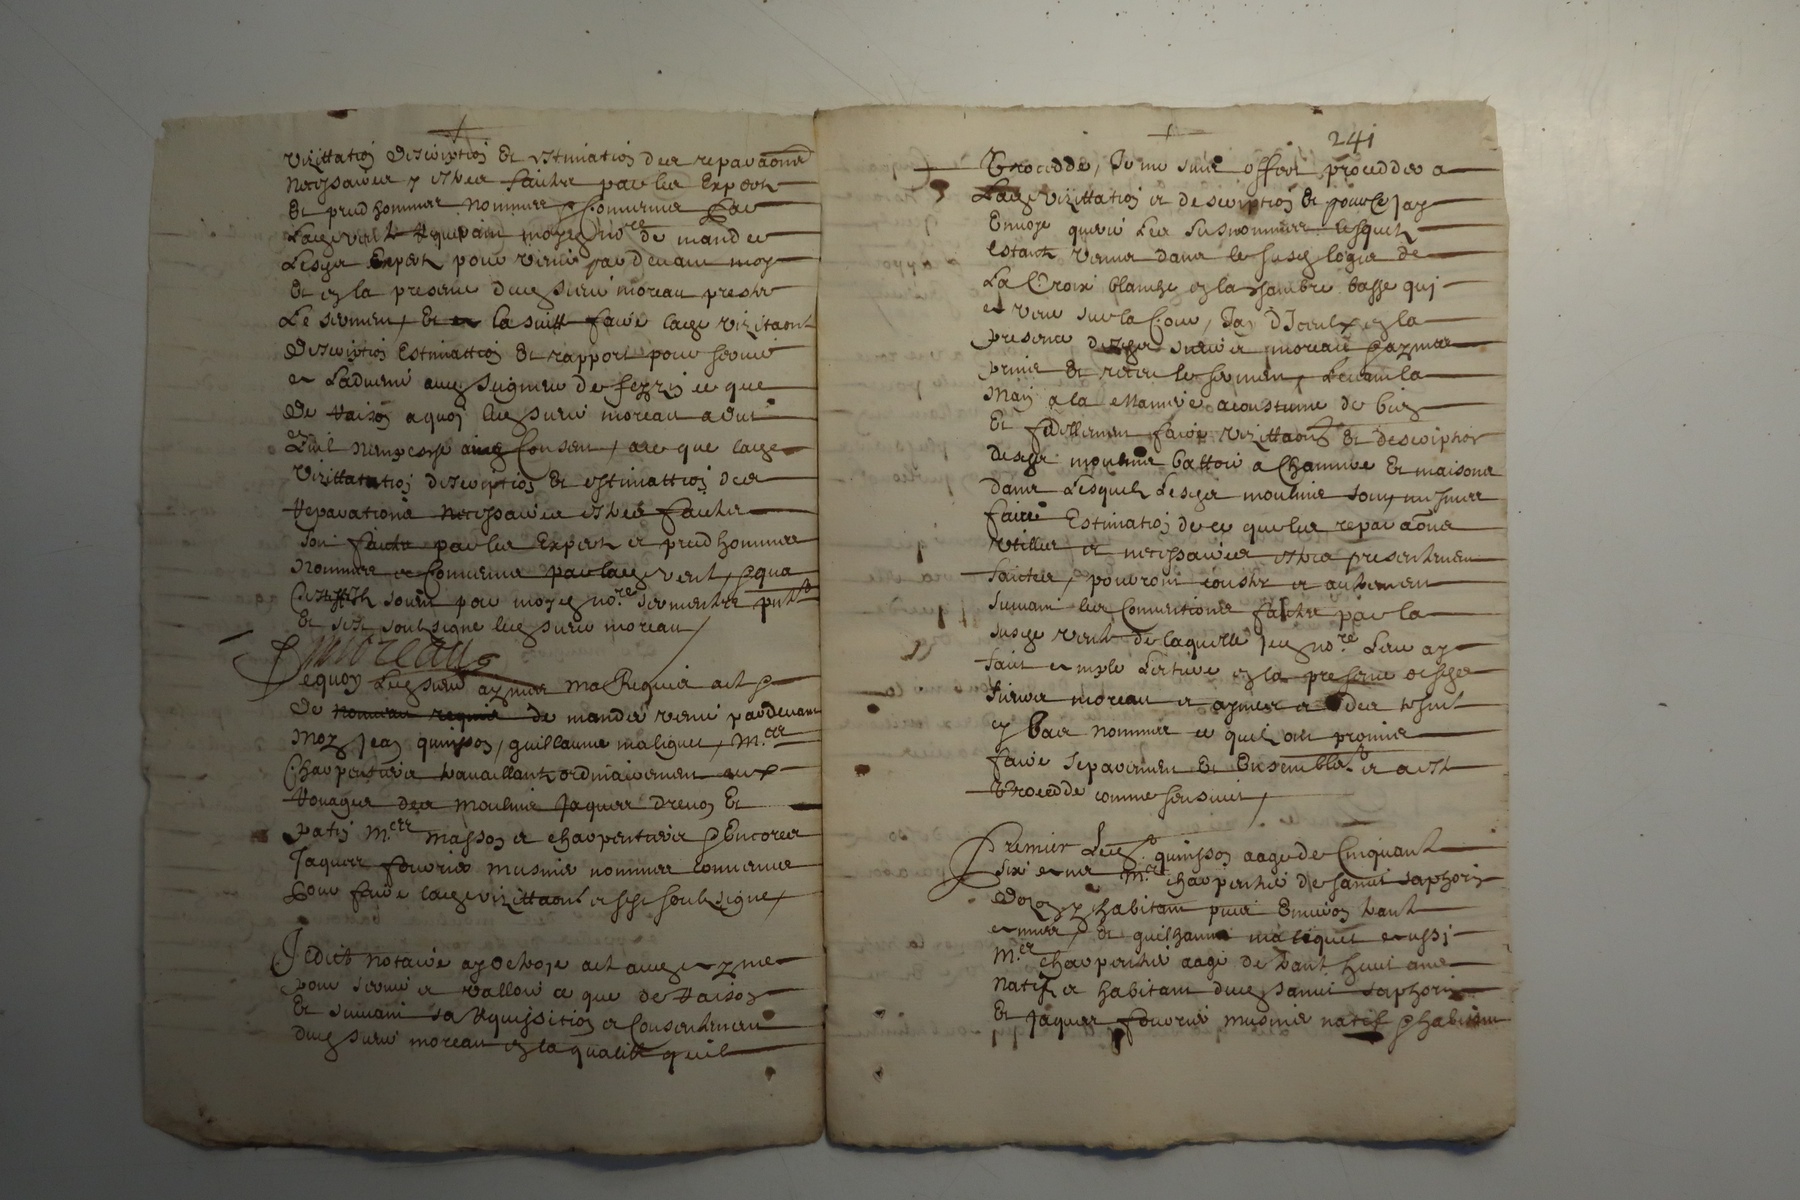 vizittation description et estimation des reparaõns
necessaires y estre faictes par les expertz
et preudhommes nommes & convenus par
lade vente requerant moyed no.re de mander
lesdz expertz pour venir pardevant moy
et en la presence dud sieur moreau prester
le serment, et en la suitte faire lade vizitaont
description estimation et rapport pour servir
et ladvenir aud seigneur de ce que
de raison a quoy led sieur moreau a dict
quil nempesche ains consent, a ce que lade
vizittation description et estimattion des
reparations necessaires estre faictes
soit faicte par les expertz et preudhommes
nommes et convenus par lade vente, & qua
soubz par moyd no.re
et sest soubsigne led sieur moreau
Moreau
Dequoy led sieur aymar ma requier act &
de mander venir pardevant
moy jean quinson, guillaume maliquet, m.res
charpentiers travaillantz ordinairement aux
rouages des moulins jaques drevon et
patin m.res masson et charpentiers & encores
jaques fourier musnier nommes convenus
pour faire lade vizittaont et sest soubsigne
Je dict notaire ay octroye act aud aymar
pour servir et valloir ce que de raison
et suivant sa requisition et consentement
dud sieur moreau en la qualite quil
241
Procedde, Je me suis offert procedder a
lade vizittation et description et pour ce jay
envoye querir les susnommes lesquelz
estantz venus dans le susd logis de
la Croix blanche en la chambre basse qui
et veue sur la Cour, Jay diceulx en la
presence desdz sieurs moreau & aymar
prins et receu le serment, levant la
main a la maniere acoustumee de bien
et fidellement faire vizittaont et description
desdz moulins battoir a chamvre et maisons
dans lesquelz lesdz moulins sont, ensuite
faire estimation de ce que les reparaõns
utilles et necessaires estre presentement
faictes, pourront couster et autrement
suivant les conventions faictes par la
susde vente de laquelle jed no.re leur ay
faict ample lecture en la presence desdz
sieurs moreau et aymar et des tesmt
cy bas nommes ce quilz ont promis
faire separement et ensemble et a este
procedde comme sensuict,
Premier led quinson aage de cinquante
six annees m.re charpentier de sainct saphorin
dozon y habitant puis environ trante
annees, et guilhaume maliquet aussi
m.re charpentier aage de trante huict ans
natif et habitant dud sainct saphorin
et jaques fourier musnier natif & habitant